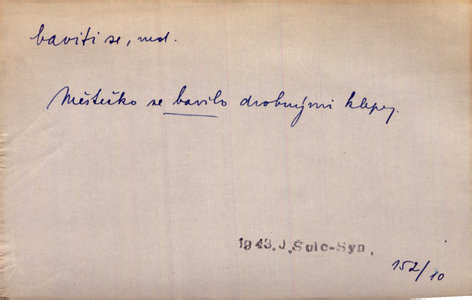 baviti se, ned.
Městečko se bavilo drobnými klepy.
1943. J. Šulc-Syn.
152/10